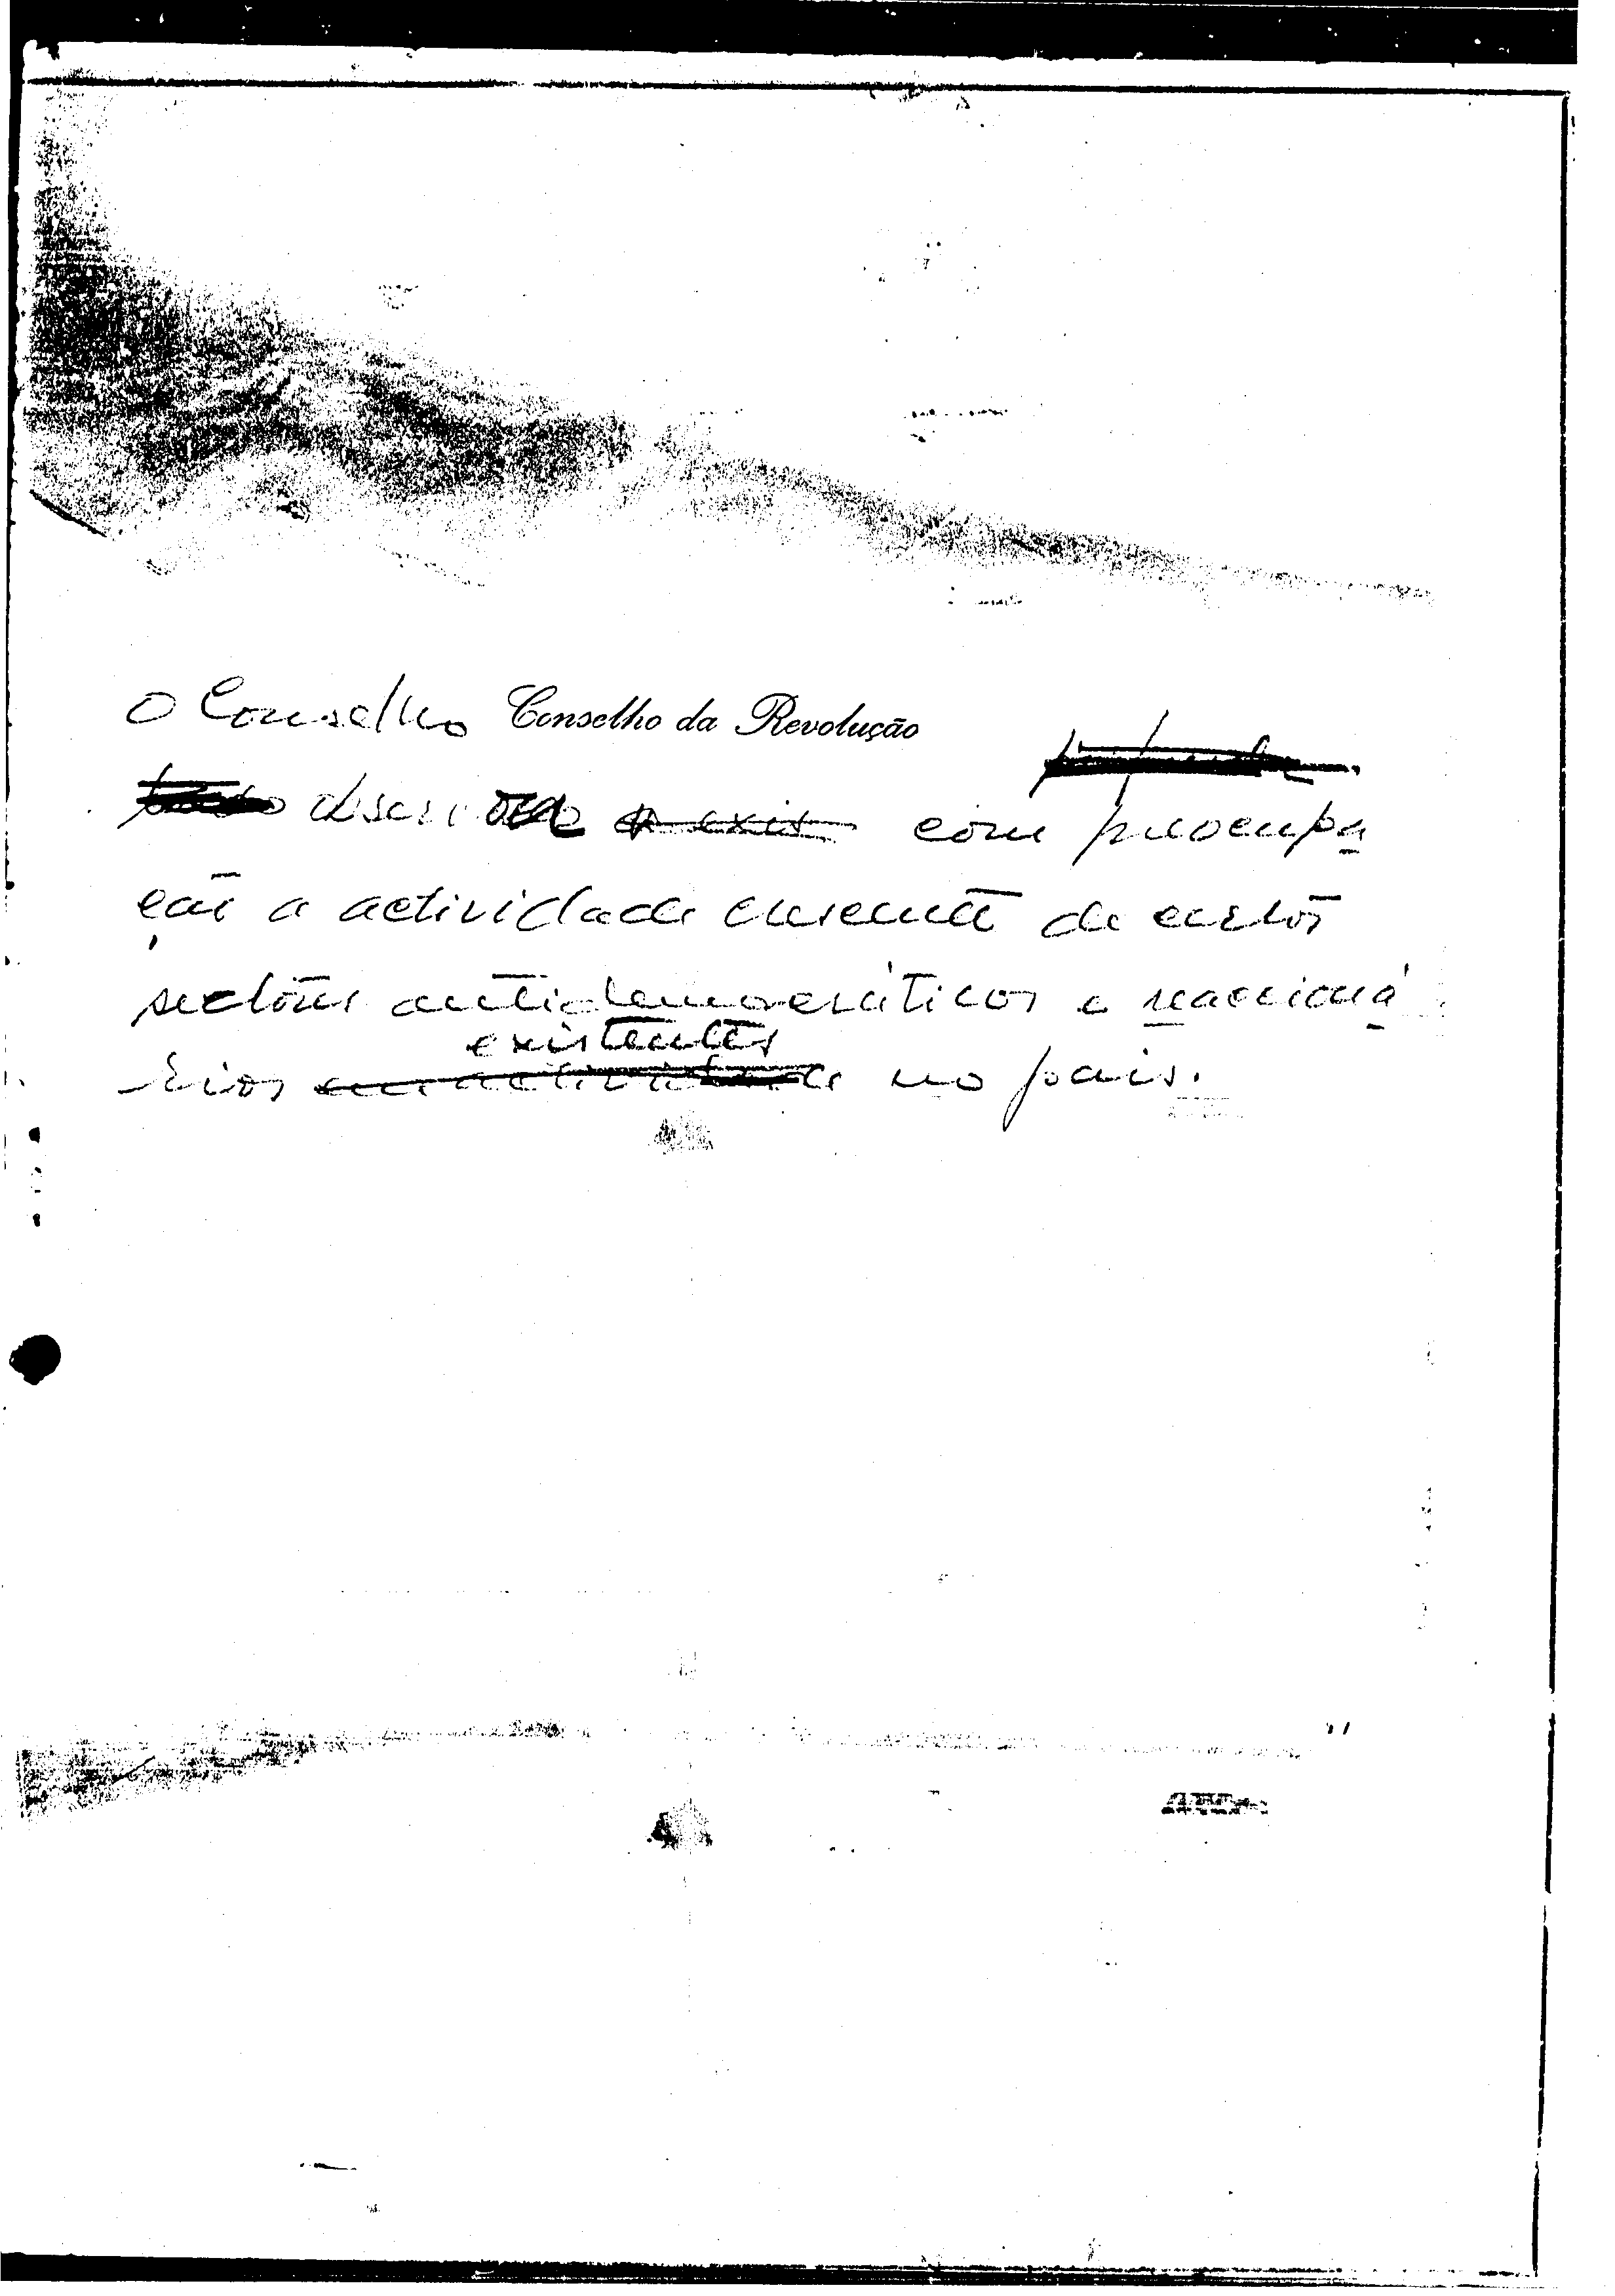 O Conselho Conselho da Revolução
observou com preocupa
ção a actividade crescente de certos
sectores antidemocráticos e reaccioná
existentes
rios no país.